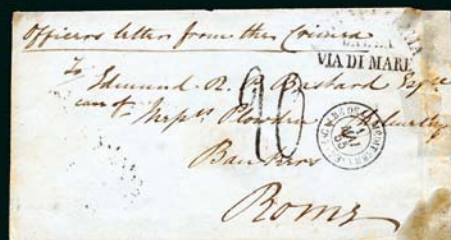 Officers letter from the Crimea
VIA DI MARE
To
Edmund R. P. Bastard Esqre
care of Messrs Plowden & Cholmeley
10
Bankers
Rome